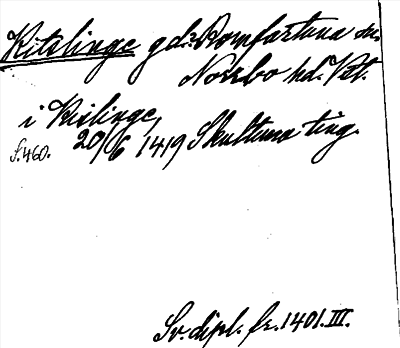 Kitslinge gd: Romfartuna sn.
Norrbo hd. Vstm.
i Kislinge,
20/6 1419 Skultuna ting.
s. 460.
Sv. dipl. fr. 1401. III.